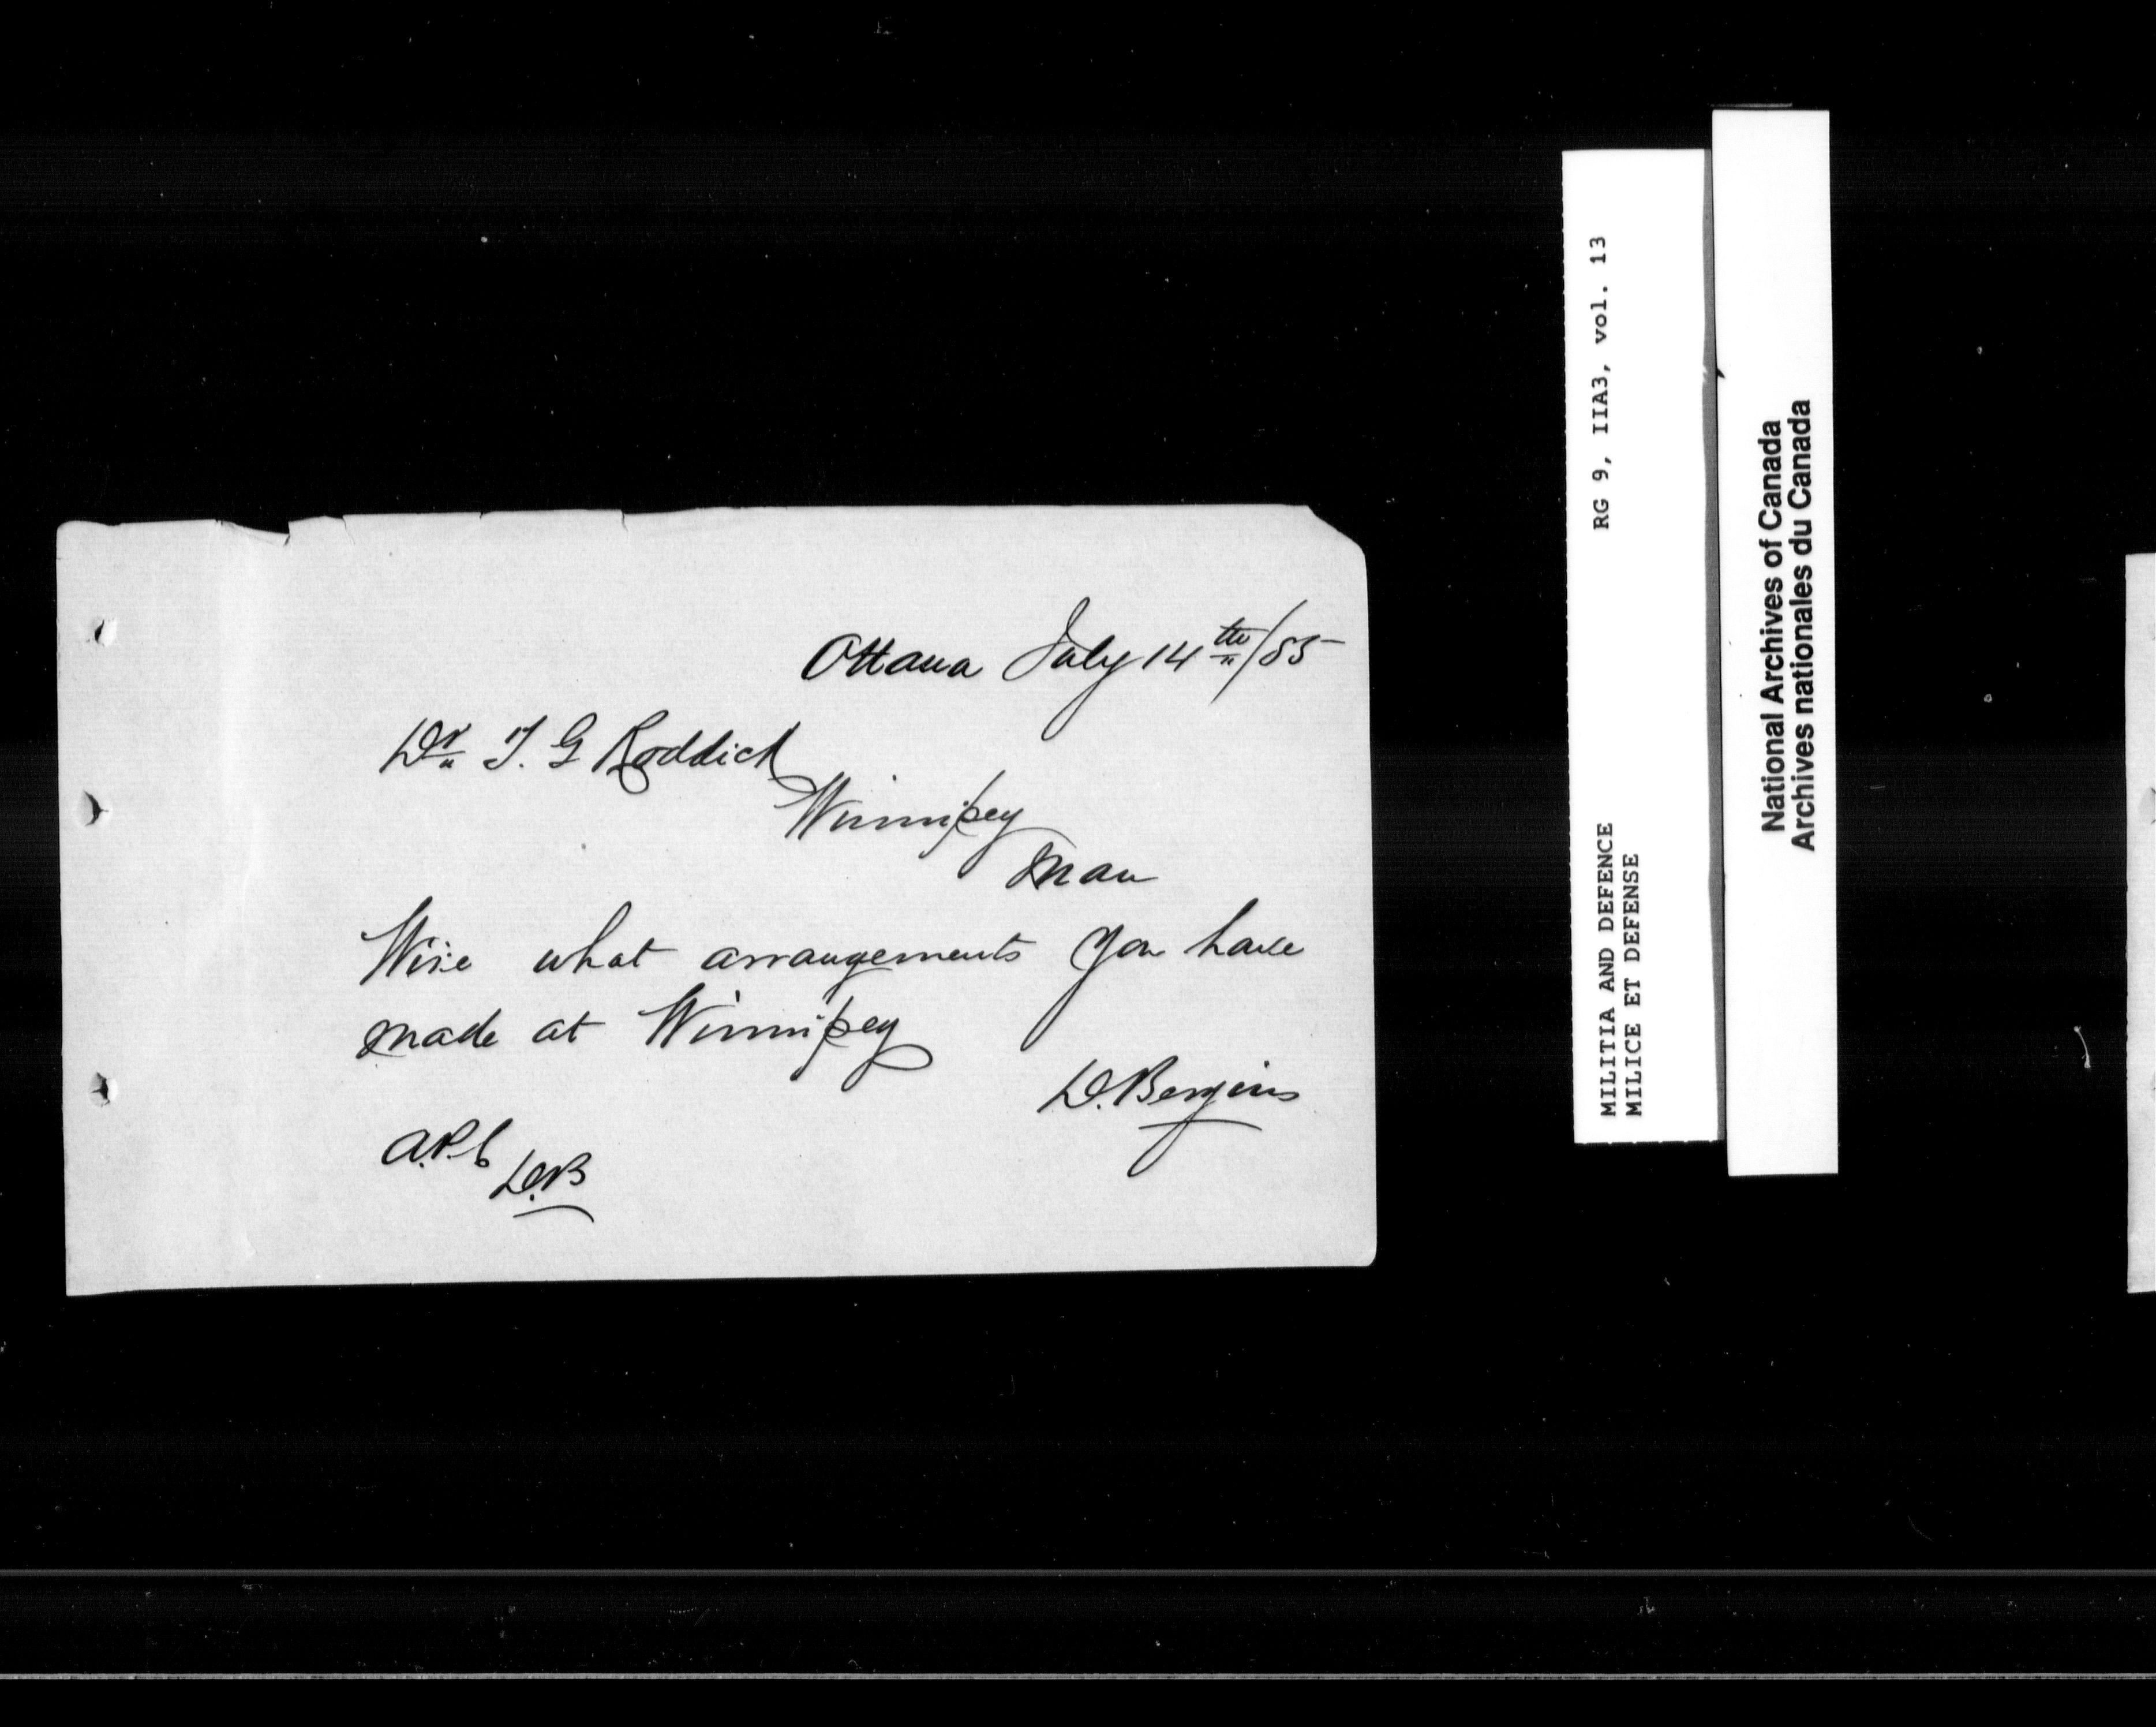 Ottawa July 14th/85
Dr. T. G Roddick
Winnipeg
Man
Wire what arrangements you have
made at Winnipeg
D. Bergin
D.B
RG 9, IIA3, vol. 13
MILITIA AND DEFENCE
MILICE ET DEFENSE
National Archives of Canada
Archives nationales du Canada